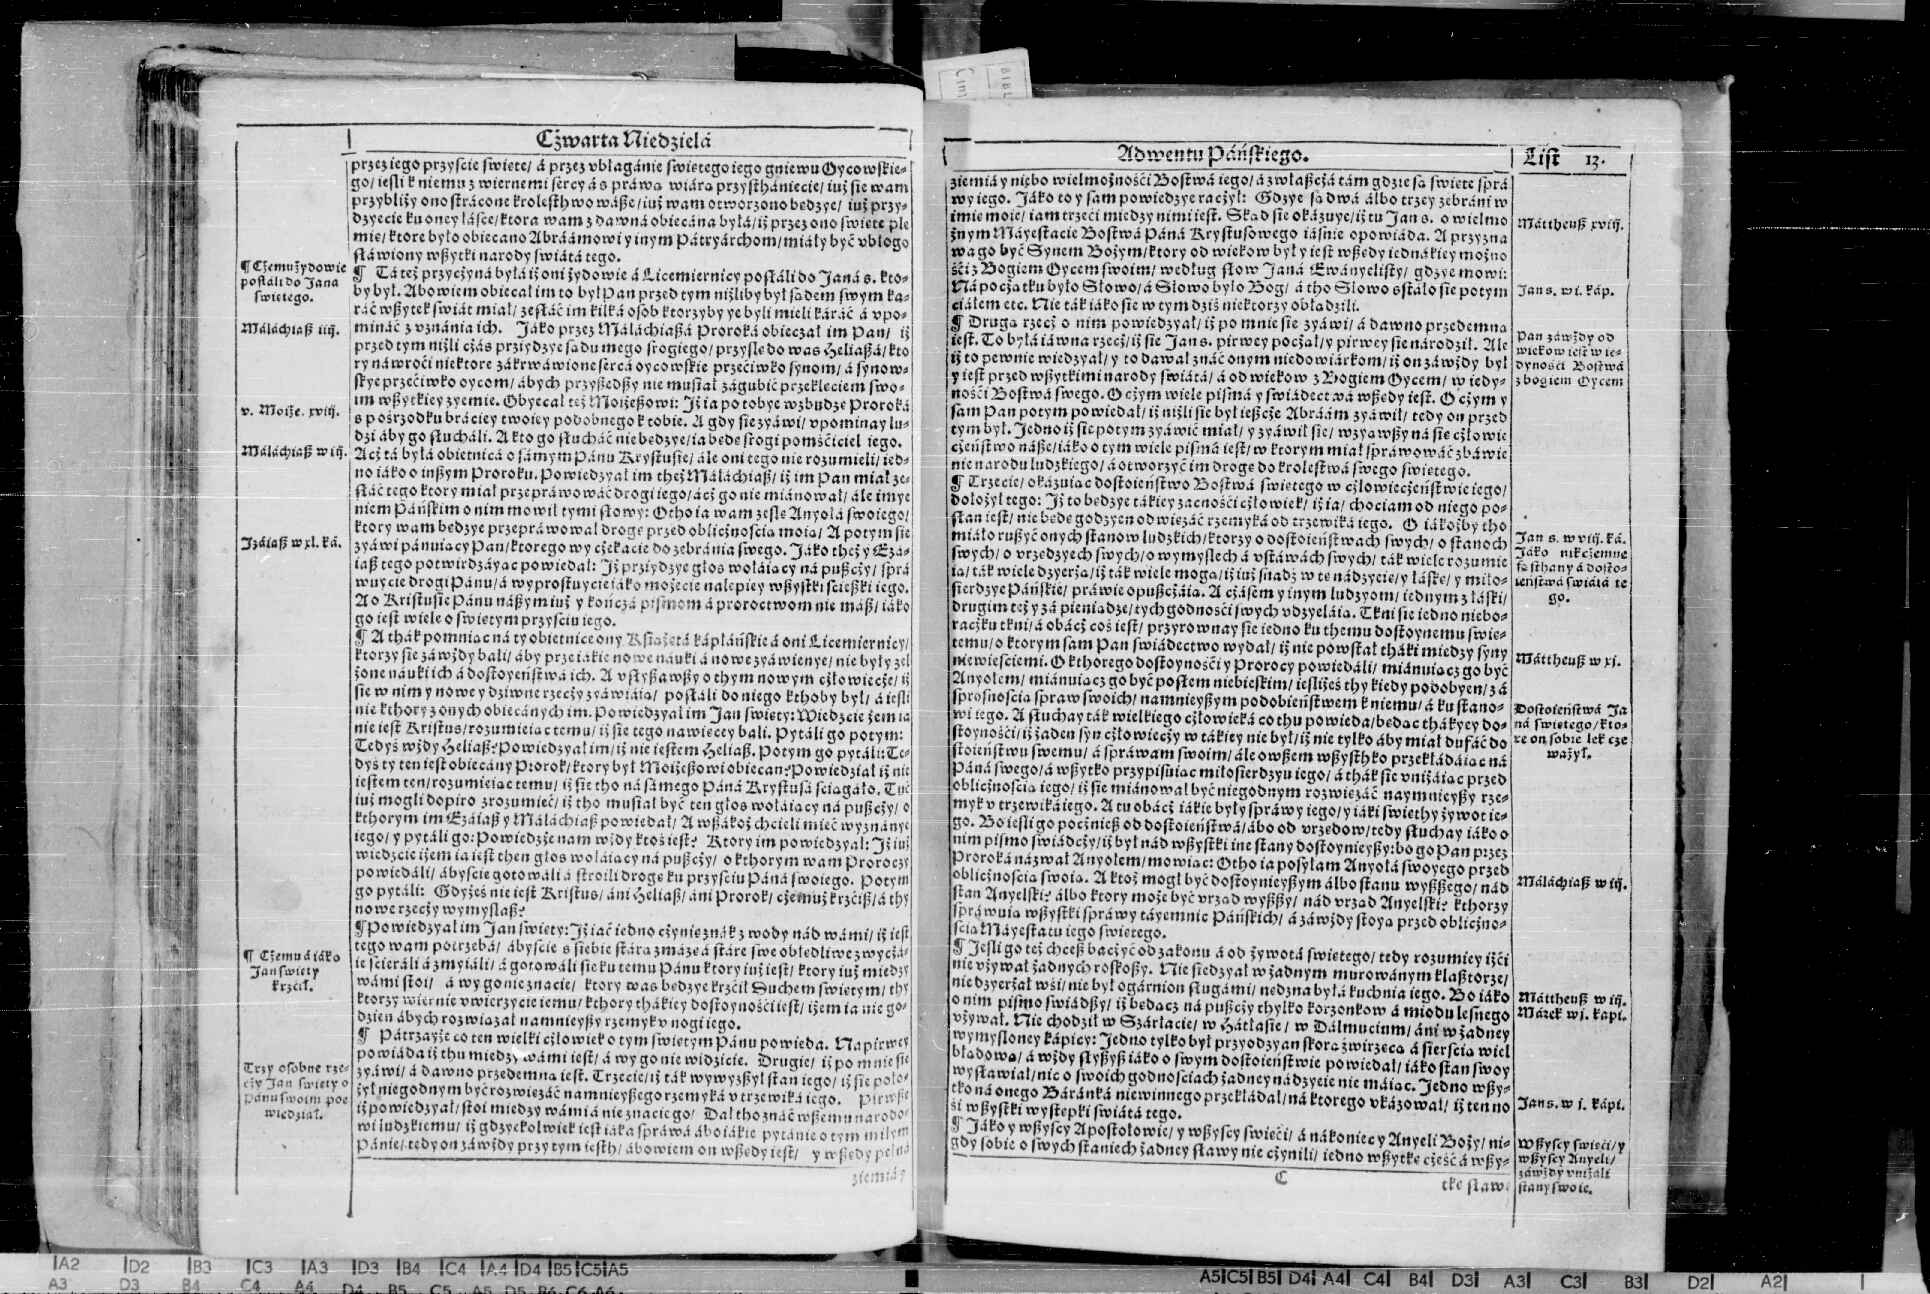 Cżwarta Niedzielá
przez iego przyście święte/ á przez vbłagánie świętego iego gniewu Oycowskie-
go/ iesli k niemu z wiernemi sercy á s prawą wiárą przysthániecie/ iuż sie wam
przybliży ono stracone krolesthwo wásze/ iuż wam otworzono będzye/ iuż przy-
dzyecie ku oney łásce/ ktora wam z dawná obiecána byłá/ iż przez ono święte ple
mię/ ktore było obiecano Abráámowi y inym Pátryárchom/ miáły być vbłogo
słáwiony wszytki narody świátá tego.
¶ Tá też przyczyná byłá iż oni żydowie á Licemiernicy posłáli do Janá s. kto-
by był. Abowiem obiecał im to był Pan przed tym niżliby był sądem swym ka-
rać wszytek świát miał/ zesłáć im kilká osob ktorzyby ye byli mieli káráć á vpo-
mináć z vznánia ich. Jáko przez Máláchiaszá Proroká obieczał im Pan/ iż
przed tym niżli czás przyidzye sądu mego srogiego/ przyślę do was Heliaszá/ kto
ry náwroći niektore zákrwáwione sercá oycowskie przećiwko synom/ á synow-
skye przećiwko oycom/ ábych przyszedszy nie musiał zágubić przeklęciem swo-
im wszytkiey zyemie. Obyecał też Moiżeszowi: Jż ia po tobye wzbudzę Proroká
s pośrzodku bráciey twoiey podobnego k tobie. A gdy sie zyáwi/ vpominay lu-
dzi áby go słucháli. A kto go słucháć nie będzye/ ia będę srogi pomściciel iego.
Acż tá byłá obietnicá o sámym Pánu Krystusie/ ále oni tego nie rozumieli/ ied-
no iáko o inszym Proroku. Powiedzyał im theż Máláchiasz/ iż im Pan miał ze-
słáć tego ktory miał przepráwowáć drogi iego/ ácż go nie miánował/ ále imye
niem Páńskim o nim mowił tymi słowy: Otho ia wam ześlę Anyołá swoiego/
ktory wam będzye przepráwował drogę przed obliczzNością moią/ A potym sie
zyáwi pánuiący Pan/ ktorego wy cżekacie do zebránia swego. Jáko theż y Ezá-
iasz tego potwirdzáyąc powiedał: Jż przyidzye głos wołáiący ná puszczy/ sprá
wuycie drogi Pánu/ á wyprostuycie iáko możecie nalepiey wszystki scieszki iego.
A o Kristusie Pánu nászym iuż y końcżá pismom á proroctwom nie mász/ iáko
go iest wiele o świętym przyściu iego.
¶ A thák pomniąc ná ty obietnice ony Książętá kápłáńskie á oni Licemiernicy/
ktorzy sie záwżdy bali/ áby prze iákie nowe náuki á nowe zyáwienye/ nie były zel
żone náuki ich á dostoyeństwá ich. A vsłyszawszy o thym nowym człowiecze/ iż
sie w nim y nowe y dziwne rzeczy zyáwiáią/ posłáli do niego kthoby był/ á iesli
nie kthory z onych obiecánych im. Powiedzyał im Jan święty: Wiedzcie żem ia
nie iest Kristus/ rozumieiąc temu/ iż sie tego nawięcey bali. Pytáli go potym:
Tedyś wżdy Heliasz? Powiedzyał im/ iż nie iestem Heliasz. Potym go pytáli: Te-
dyś ty ten iest obiecány Prorok/ ktory był Moiżeszowi obiecan? Powiedział iż nie
iestem ten/ rozumieiąc temu/ iż sie tho ná sámego Páná Krystusá ściągáło. Tuć
iuż mogli dopiro zrozumieć/ iż tho musiał być ten głos wołáiący ná puszczy/ o
kthorym im Ezáiasz y Máláchiasz powiedał/ A wszákoż chcieli mieć wyznánye
iego/ y pytáli go: Powiedzże nam wżdy ktoś iest? Ktory im powiedzyał: Jż iuż
wiedzcie iżem ia iest then głos wołáiący ná puszczy/ o kthorym wam Prorocży
powiedáli/ ábyście gotowáli á stroili drogę ku przyściu Páná swoiego. Potym
go pytáli: Gdyżeś nie iest Kristus/ áni Heliasz/ áni Prorok/ cżemuż krzcisz/ á thy
nowe rzeczy wymyślasz?
¶ Powiedzyał im Jan święty: Jż iać iedno cżynię znák z wody nád wámi/ iż iest
tego wam potrzebá/ ábyście s siebie stárą zmázę á stáre swe obłędliwe zwyczá-
ie ścieráli á zmyiáli/ á gotowáli sie ku temu Pánu ktory iuż iest/ ktory iuż miedzy
wámi stoi/ á wy go nie znacie/ ktory was będzye krzcił Duchem świętym/ thy
ktorzy wiernie vwierzycie iemu/ kthory thákiey dostoyności iest/ iżem ia nie go-
dzien ábych rozwiązał namnieyszy rzemyk v nogi iego.
¶ Pátrzayże co ten wielki człowiek o tym świętym Pánu powieda. Napirwey
powiáda iż thu miedzy wámi iest/ á wy go nie widzicie. Drugie/ iż po mnie sie
zyáwi/ á dawno przedemną iest. Trzecie/ iż ták wywyzszył stan iego/ iż sie poło-
żył niegodnym być rozwięzáć namnieyszego rzemyká v trzewiká iego. Pirwsze
iż powiedzyał/ stoi miedzy wámi á nie znacie go/ Dał tho znáć wszemu narodo-
wi ludzkiemu/ iż gdzyekolwiek iest iáka spráwá ábo iákie pytánie o tym miłym
Pánie/ tedy on záwżdy przy tym iesth/ ábowiem on wszędy iest/ y wszędy pełná
ziemiá y
¶ Cżemu żydowie
posłáli do Janá
świętego.
Máláchiasz iiij.
v. Moiże. xviij.
Máláchiasz w iij.
Jzáiasz w xl. ká.
¶ Cżemu á iáko
Jan święty
krzcił.
Trzy osobne rze-
cży Jan święty o
Pánu swoim poe
wiedział.
Adwentu Páńskiego.
List 13.
ziemiá y niebo wielmożności Bostwá iego/ á zwłaszczá tám gdzie są święte sprá
wy iego. Jáko to y sam powiedzye raczył: Gdzye są dwá álbo trzey zebráni w
imię moie/ iam trzeci miedzy nimi iest. Skąd sie okázuye/ iż tu Jan s. o wielmo
żnym Máyestacie Bostwá Páná Krystusowego iáśnie opowiáda. A przyzna
wa go być Synem Bożym/ ktory od wiekow był y iest wszędy iednákiey możno
ści z Bogiem Oycem swoim/ według słow Janá Ewányelisty/ gdzye mowi:
Ná początku było Słowo/ á Słowo było Bog/ á tho Słowo sstáło sie potym
ciáłem etc. Nie ták iáko sie w tym dziś niektorzy obłądzili.
¶ Druga rzecz o nim powiedzyał/ iż po mnie sie zyáwi/ á dawno przedemną
iest. To byłá iáwna rzecz/ iż sie Jan s. pirwey począł/ y pirwey sie národził. Ale
iż to pewnie wiedzyał/ y to dawał znáć onym niedowiárkom/ iż on záwżdy był
y iest przed wszytkimi narody świátá/ á od wiekow z Bogiem Oycem/ w iedy-
ności Bostwá swego. O cżym wiele pismá y świádectwá wszędy iest. O cżym y
sam Pan potym powiedał/ iż niżli sie był ieszcze Abráám zyáwił/ tedy on przed
tym był. Jedno iż sie potym zyáwić miał/ y zyáwił sie/ wzyąwszy ná sie człowie
czeństwo násze/ iáko o tym wiele pismá iest/ w ktorym miał spráwowáć zbáwie
nie narodu ludzkiego/ á otworzyć im drogę do krolestwá swego świętego.
¶ Trzecie/ okázuiąc dostoieństwo Bostwá świętego w człowieczeństwie iego/
dołożył tego: Jż to będzye tákiey zacności człowiek/ iż ia/ chociam od niego po-
słan iest/ nie będę godzyen odwięzáć rzemyká od trzewiká iego. O iákożby tho
miáło ruszyć onych stanow ludzkich/ ktorzy o dostoieństwach swych/ o stanoch
swych/ o vrzędzyech swych/ o wymysłech á vstáwách swych/ ták wiele rozumie
ią/ ták wiele dzyerżą/ iż ták wiele mogą/ iż iuż snadź w te nádzyeię/ y łáskę/ y miło-
sierdzye Páńskie/ práwie opuszczáią. A cżásem y inym ludzyom/ iednym z łáski/
drugim też y zá pieniądze/ tych godności swych vdzyeláią. Tkni sie iedno niebo-
raczku tkni/ á obacż coś iest/ przyrownay sie iedno ku themu dostoynemu świę-
temu/ o ktorym sam Pan świádectwo wydał/ iż nie powstał tháki miedzy syny
niewieściemi. O kthorego dostoyności y Prorocy powiedáli/ miánuiąc go być
Anyołem/ miánuiąc go być posłem niebieskim/ iesliżeś thy kiedy podobyen/ zá
sprosnością spraw swoich/ namnieyszym podobieństwem k niemu/ á ku stano-
wi iego. A słuchay ták wielkiego człowieká co thu powieda/ będąc thákyey do-
stoyności/ iż żaden syn człowieczy w tákiey nie był/ iż nie tylko áby miał dufáć do
stoieństwu swemu/ á spráwam swoim/ ále owszem wszysthko przekłádáiąc ná
Páná swego/ á wszytko przypisuiąc miłosierdzyu iego/ á thák sie vniżáiąc przed
oblicznością iego/ iż sie miánował być niegodnym rozwięzáć naymnieyszy rze-
myk v trzewiká iego. A tu obacż iákie były spráwy iego/ y iáki święthy żywot ie-
go. Bo iesli go poczniesz od dostoieństwá/ ábo od vrzędow/ tedy słuchay iáko o
nim pismo świádczy/ iż był nád wszystki ine stany dostoynieyszy: bo go Pan przez
Proroká názwał Anyołem/ mowiąc: Otho ia posyłam Anyołá swoyego przed
oblicznością swoią. A ktoż mogł być dostoynieyszym álbo stanu wyszszego/ nád
stan Anyelski? álbo ktory może być vrząd wyszszy/ nád vrząd Anyelski? kthorzy
spráwuią wszystki spráwy táyemnic Páńskich/ á záwżdy stoyą przed oblicżno-
ścią Máyestatu iego świętego.
¶ Jesli go też chcesz baczyć od zakonu á od żywotá świętego/ tedy rozumiey iżći
nie vżywał żadnych roskoszy. Nie siedzyał w żadnym murowánym klasztorze/
nie dzyerżał wsi/ nie był ogárnion sługámi/ nędzna byłá kuchnia iego. Bo iáko
o nim pismo świádszy/ iż będąc ná puszczy thylko korzonkow á miodu leśnego
vżywał. Nie chodził w Szárłacie/ w Hátłasie/ w Dálmucium/ áni w żadney
wymyśloney kápicy: Jedno tylko był przyodzyan skorą źwirzęcą á sierścią wiel
błądową/ á wżdy słyszysz iáko o swym dostoieństwie powiedał/ iáko stan swoy
wystáwiał/ nic o swoich godnościach żadney nádzyeie nie máiąc. Jedno wszy-
tko ná onego Báránká niewinnego przekłádał/ ná ktorego vkázował/ iż ten no
si wszystki występki świátá tego.
¶ Jáko y wszyscy Apostołowie/ y wszyscy święci/ á nákoniec y Anyeli Boży/ ni-
gdy sobie o swych staniech żadney sławy nie czynili/ iedno wszytkę cześć á wszy-
C
tkę sławę
Máttheusz xviij.
Jan s. w i. káp.
Pan záwżdy od
wiekow iest w ie-
dyności Bostwá
z bogiem Oycem
Jan s. w viij. ká.
Jáko nikczemne
są sthany á dosto-
ieństwá świátá te
go.
Máttheusz w xj.
Dostoieństwá Ja
ná świętego/ kto-
re on sobie lek cze
ważył.
Máláchiasz w iij.
Máttheusz w iij.
Márek w j. kápi.
Jan s. w j. kápi.
Wszyscy święci/ y
wszyscy Anyeli/
záwżdy vniżáli
stany swoie.
A2 D2 B3 C3 A3 D3 B4 C4 A4 D4 B5 C5 A5
A3 D3 B4 C4 A4 D4 B5 C5 A5 D5 B6 C6 A6
A5 C5 B5 D4 A4 C4 B4 D3 A3 C3 B3 D2 A2